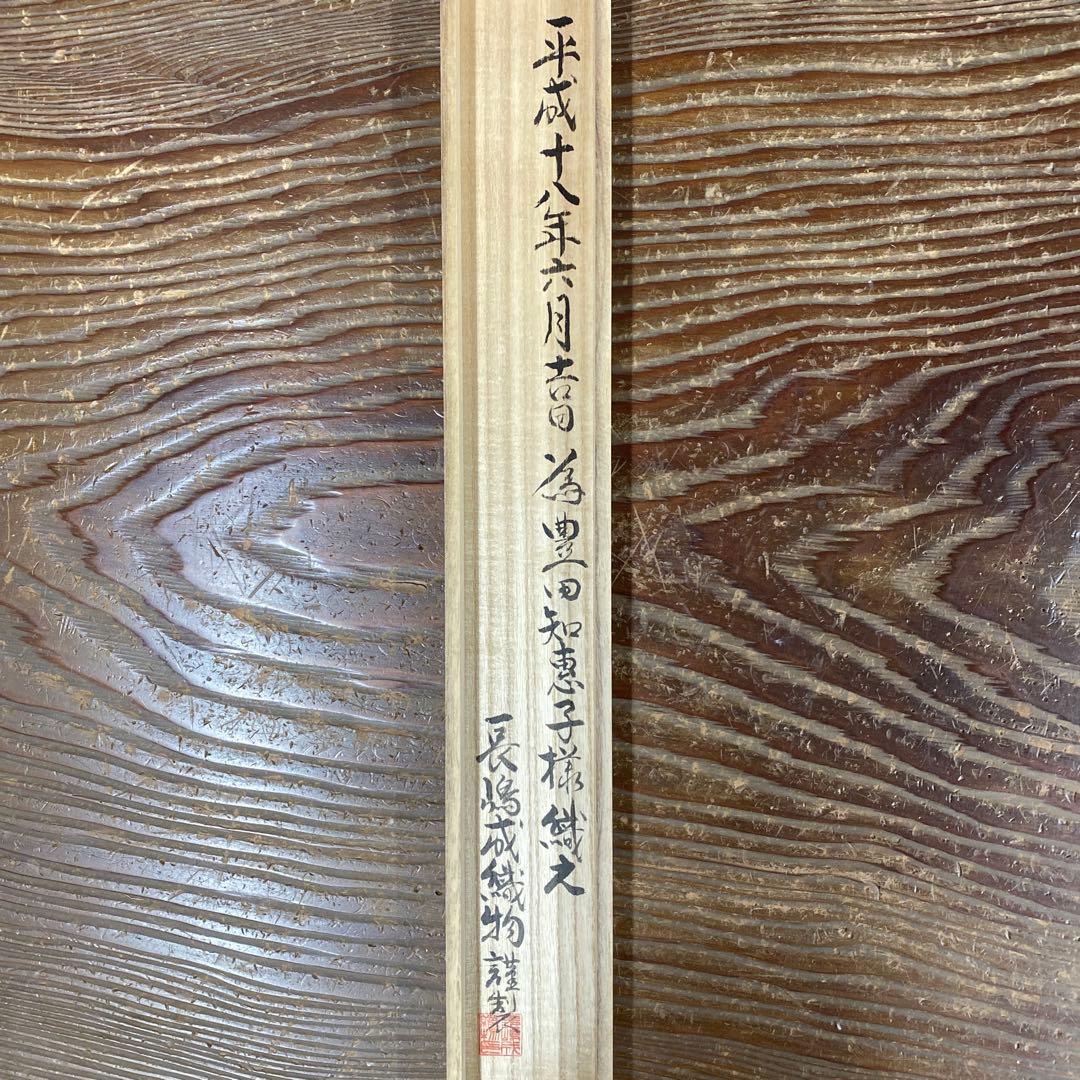 平成十八年六月吉日 為豊田知恵子様 織元
長嶋成織物謹製